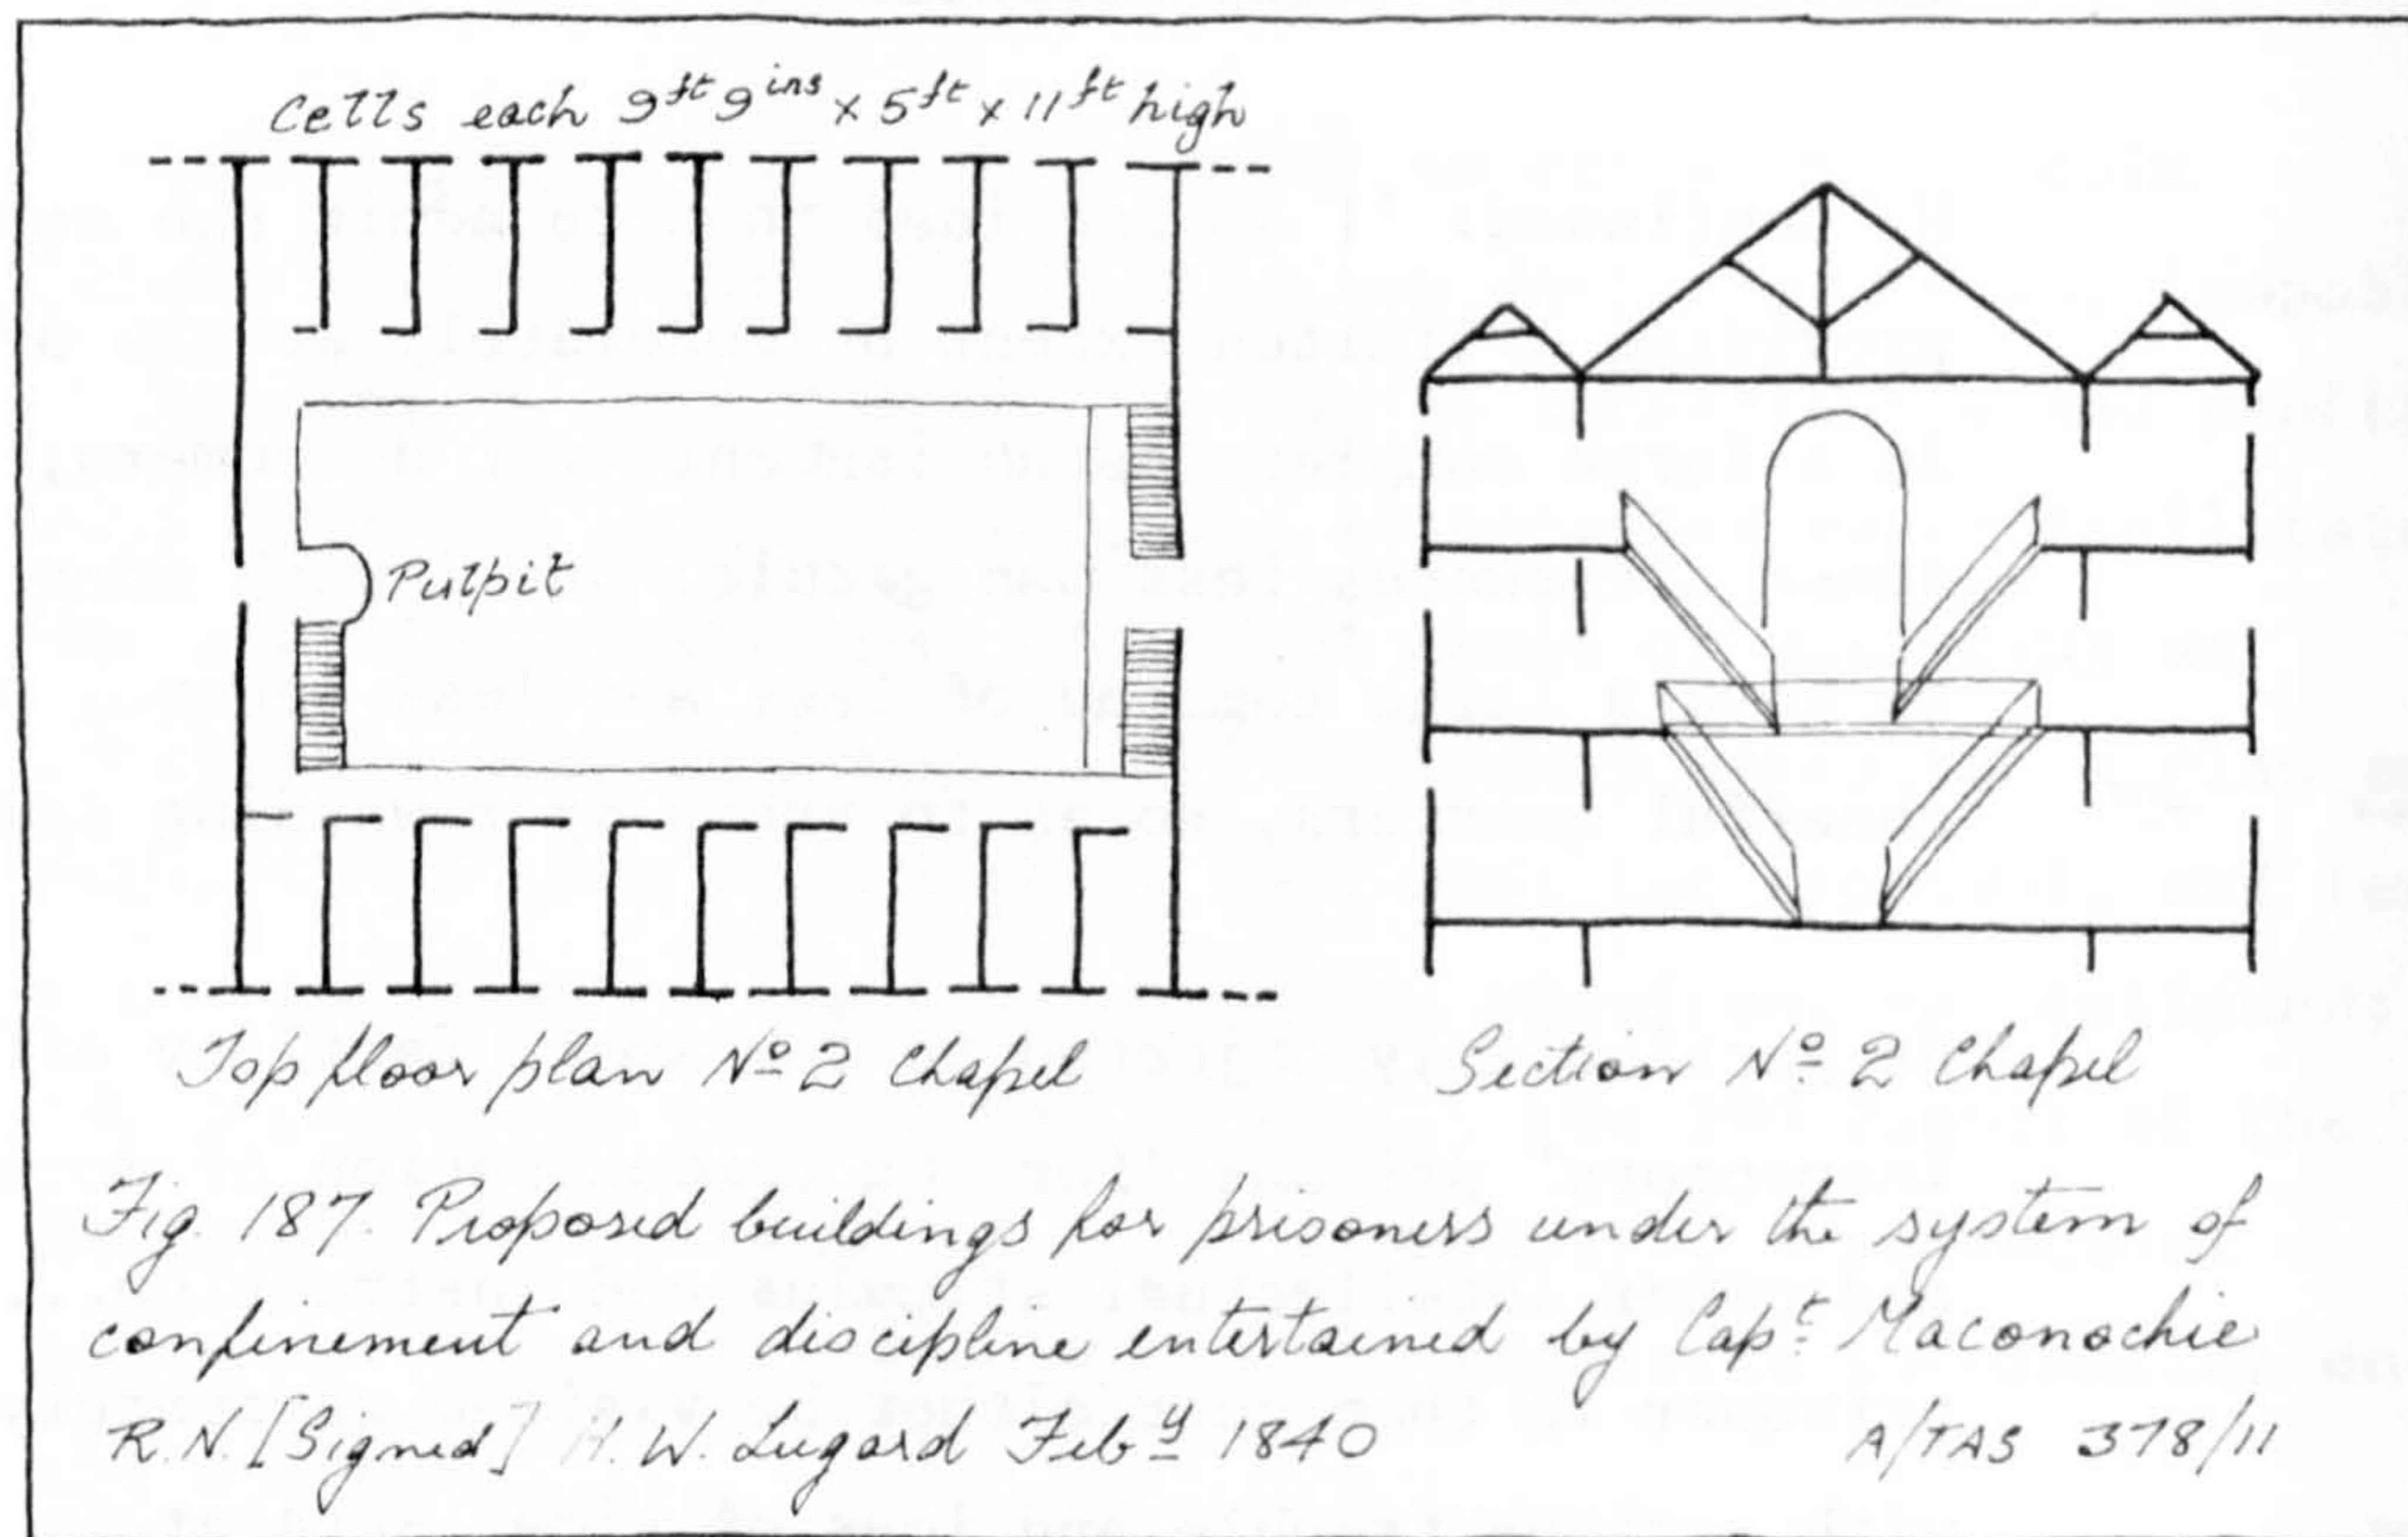 Cells each 9ft 9ins x 5ft x 11ft high
Pulpit
Top floor plan Nº 2 Chapel
Section Nº 2 Chapel
Fig. 187. Proposed buildings for prisoners under the system of
confinement and discipline entertained by Capt. Maconochie
R.N. [Signed] H. W. Lugard Feby 1840
A/TAS 378/11